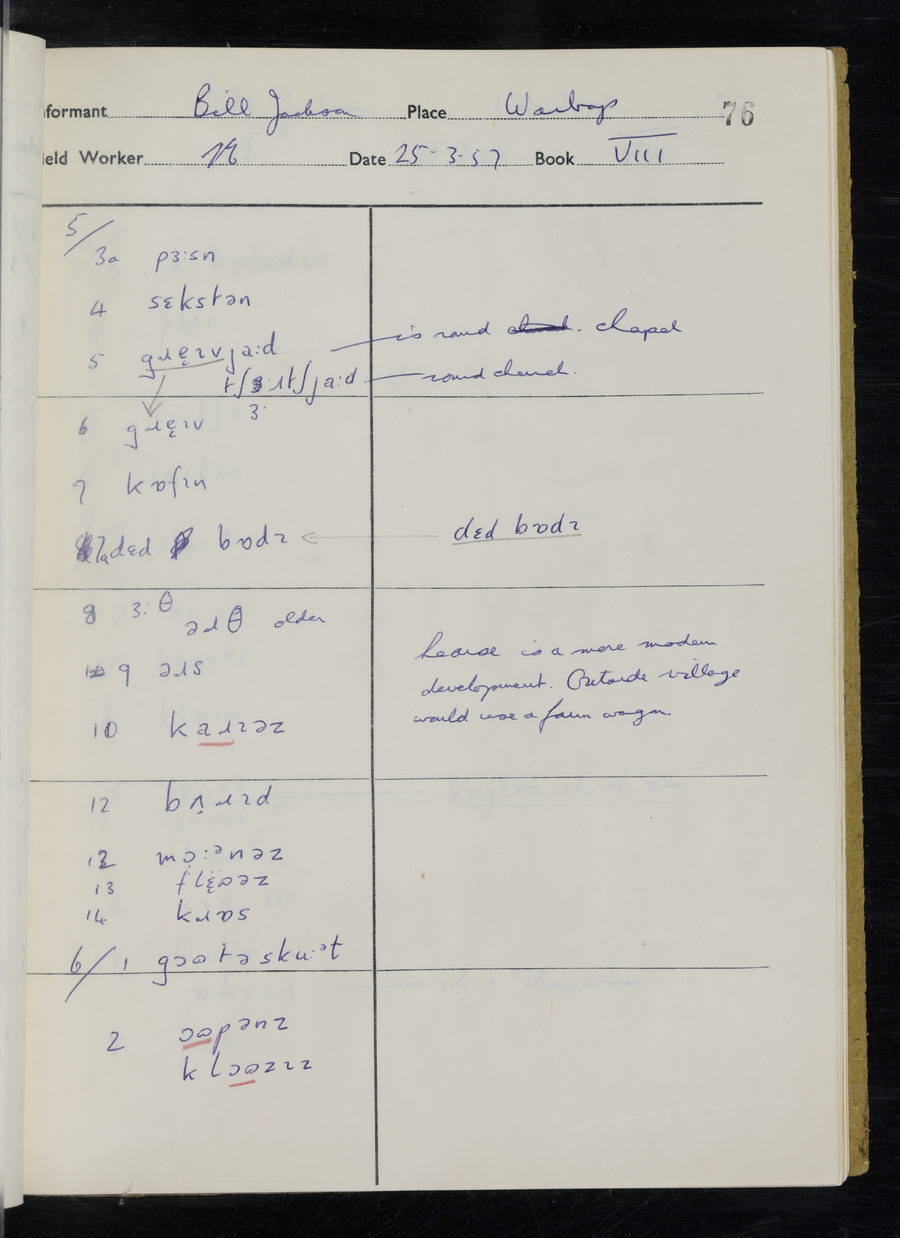 Informant Bill Jackson Place Warboys 76
Field Worker Date 25-3-57 Book VIII
5/
3a pɜːsn
4 sɛkstən
5 gɹe̞ɪvjaːd — is round chapel
tʃɜːɹtʃjaːd — round church.
ɜː
6 gɹe̞ɪv
7 kɒfɪn
7a dɛd bɒdɪ ← dɛd bɒdɪ
8 ɜːθ
əɹθ older
9 əɹs
hearse is a more modern
development. Outside village
would use a farm wagon.
10 kaɹɪəz
12 bʌ̞ɹɪd
12 mɔːənəz
13 flɛ̞ʊəz
14 kɹɒs
6/1 gəʊtəskuːət
2 ɔʊpənz
klɔʊzɪz